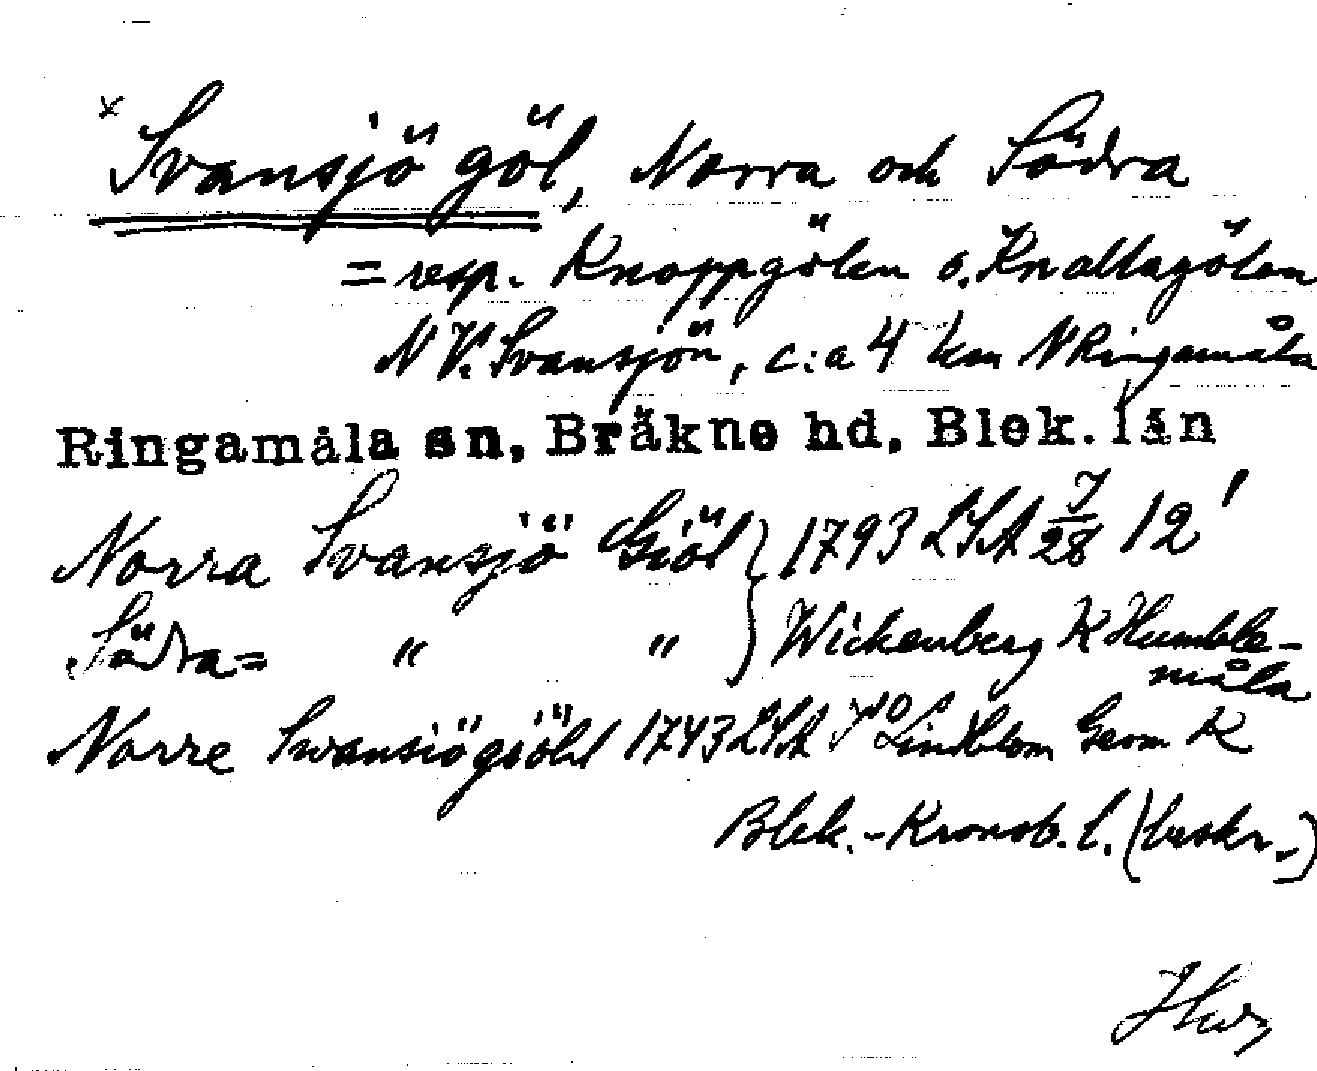 x Svansjö göl, Norra och Södra
= resp. Knoppgölen o. Knallagölen
N V. Svansjön, c:a 4 km N Ringamåla
Ringamåla sn, Bräkne hd, Blek. län
Norra Svansjö Giöl } 1793 LSA 7/28 12'
Södra = " " } Wickenberg K Humble-
måla
Norre Swansiögiöhl 1743 LSA Lindblom Geom K
Blek.-Kronob. l. (beskr.)